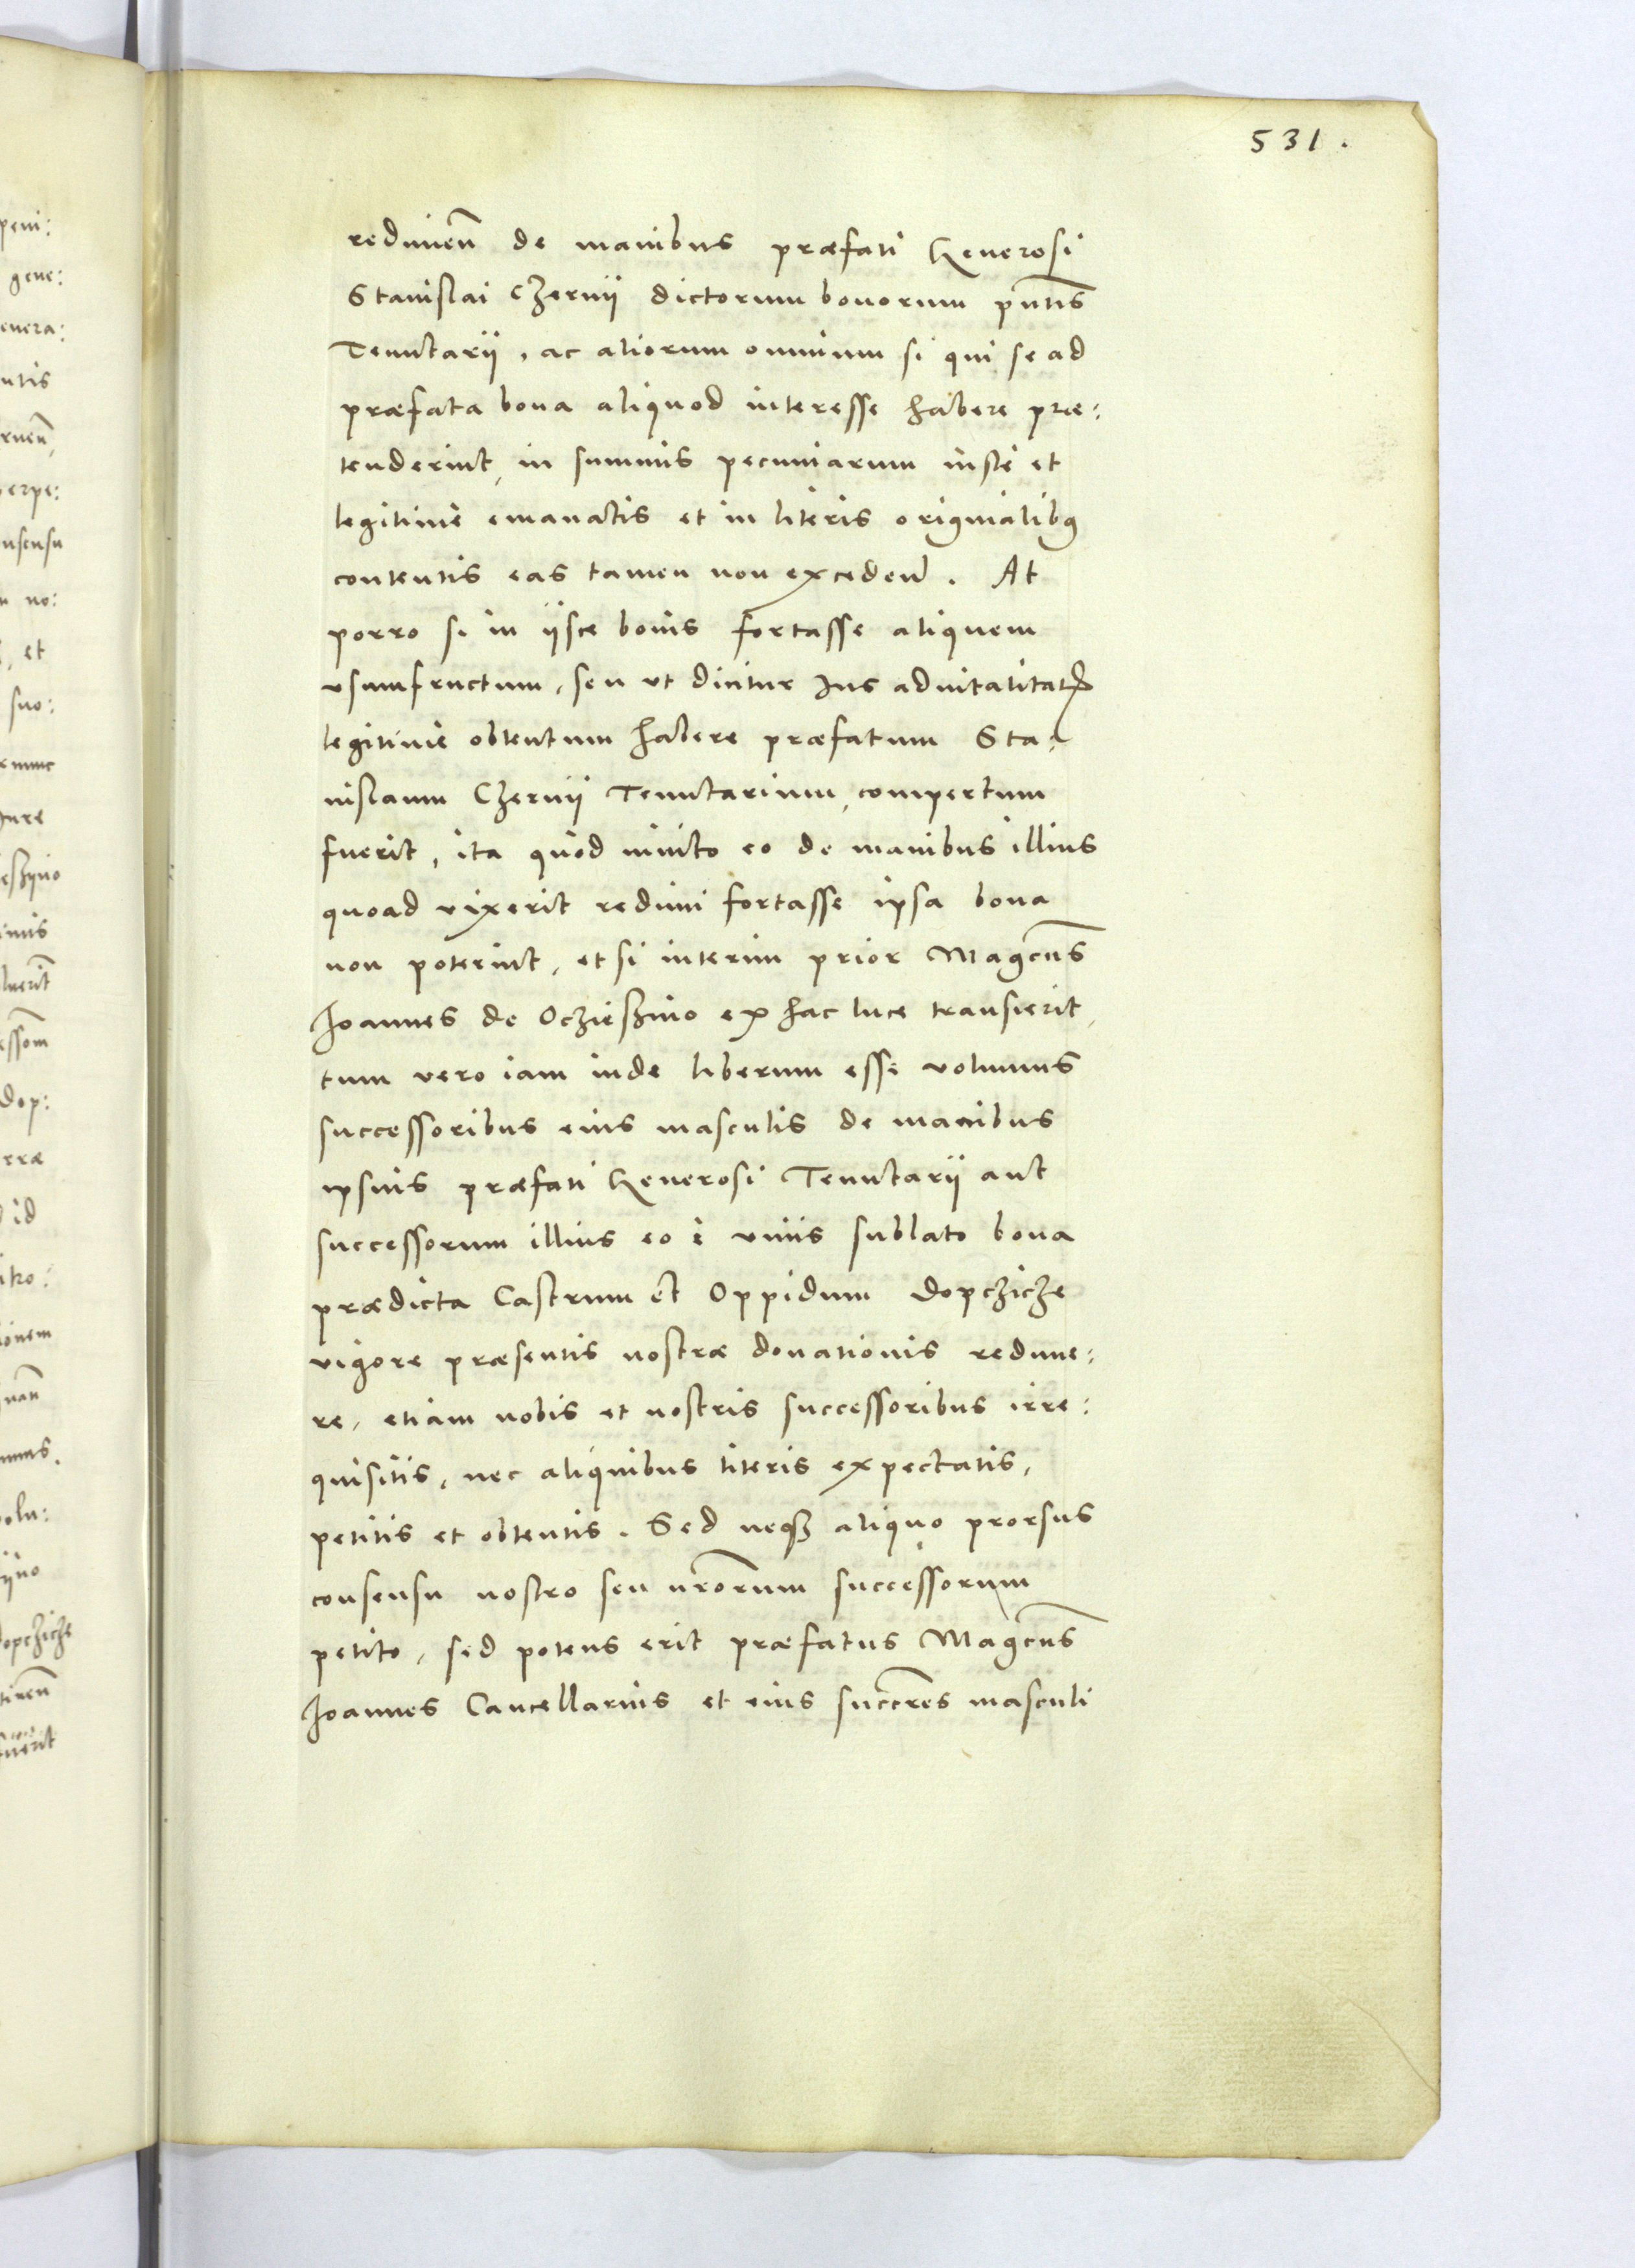 531.
redimeñ de manibus præfati Generosi
Stanislai Czernÿ dictorum bonorum pñtis
Tenutarÿ, ac aliorum omnium si qui se ad
præfata bona aliquod interesse habere præ:
tenderint, in summis pecuniarum iuste et
legitime emanatis et in literis originalibꝯ
contentis eas tamen non exceden̄. At
porro si in ÿsce bonis fortasse aliquem
vsumfructum, seu ut dicitur Jus aduitalitatis
legitime obtentum habere præfatum Sta:
nislaum Czernÿ Tenutarium, compertum
fuerit, ita quod inuito eo de manibus illius
quoad vixerit redimi fortasse ipsa bona
non poterint, et si interim prior Magcũs
Joannes de Oczieszino ex hac luce transierit,
tum vero iam inde liberum esse volumus
successoribus eius masculis de manibus
ipsius præfati Generosi Tenutarÿ aut
successorum illius eo è viuis sublato bona
prædicta Castrum et Oppidum Dopczicze
vigore præsentis nostræ donationis redime:
re, etiam nobis et nostris successoribus irre:
quisitis, nec aliquibus literis expectatis,
petitis et obtentis. Sed neqꝫ aliquo prorsus
consensu nostro seu nr̃orum successorum
petito, sed potens erit præfatus Magcũs
Joannes Cancellarius et eius succr̃es masculi